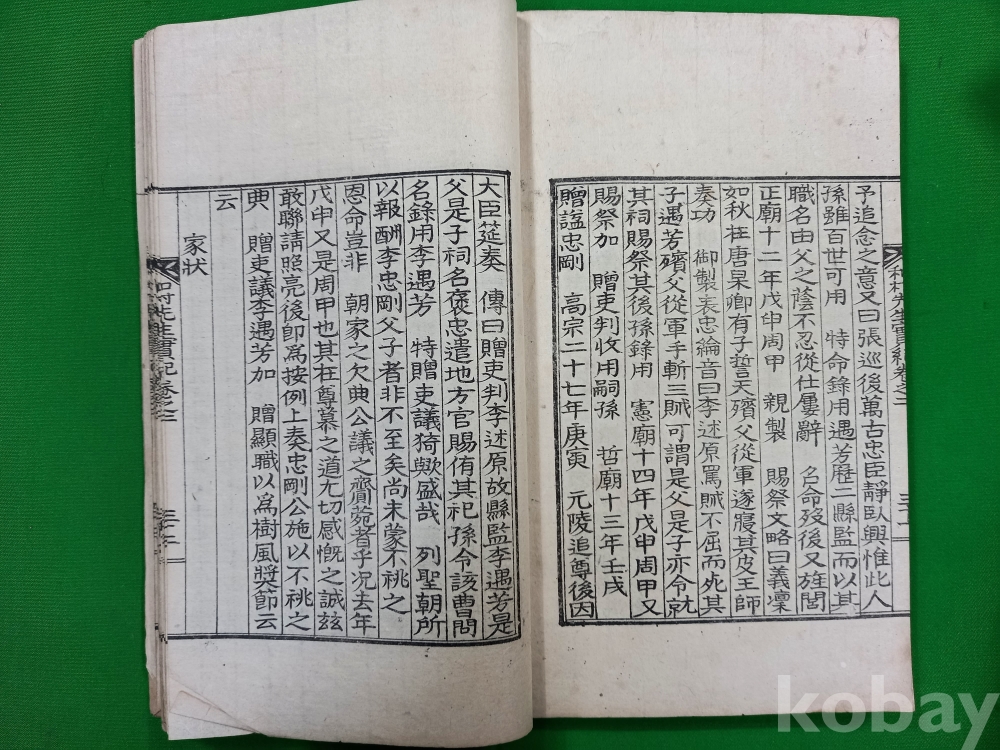 予追念之意又曰張巡後萬古忠臣靜臥興惟此人
孫雖百世可用 特命錄用遇芳歷二縣監而以其
職名由父之蔭不忍從仕屢辭 召命歿後又旌閭
正廟十二年戊申周甲 親製 賜祭文略曰義凜
如秋在唐杲卿有子誓天殯父從軍遂寢其皮王師
奏功 御製表忠綸音曰李述原罵賊不屈而死其
子遇芳殯父從軍手斬三賊可謂是父是子亦令就
其祠賜祭其後孫錄用 憲廟十四年戊申周甲又
賜祭加 贈吏判收用嗣孫 哲廟十三年壬戌
贈諡忠剛 高宗二十七年庚寅 元陵追尊後因
大臣筵奏 傳曰贈吏判李述原故縣監李遇芳是
父是子祠名褒忠遣地方官賜侑其祀孫令該曹問
名錄用李遇芳 特贈吏議猗歟盛哉 列聖朝所
以報酬李忠剛父子者非不至矣尚未蒙不祧之
恩命豈非 朝家之欠典公議之齎菀者乎況去年
戊申又是周甲也其在尊慕之道尤切感慨之誠玆
敢聯請照亮後卽爲按例上奏忠剛公施以不祧之
典 贈吏議李遇芳加 贈顯職以爲樹風獎節云
云
家狀
和村先生實紀卷之二
kobay